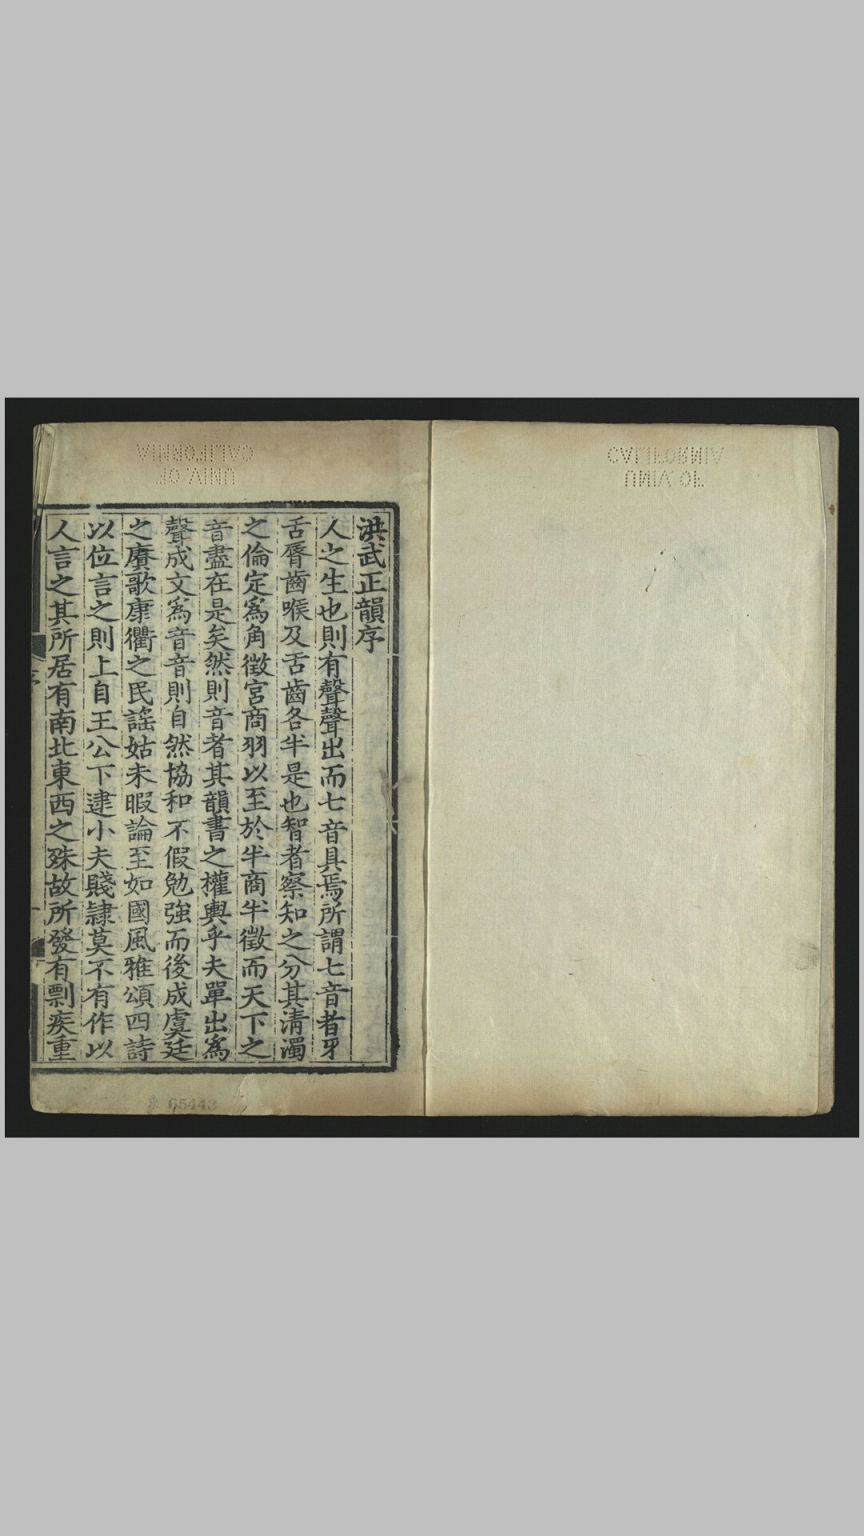 洪武正韻序
人之生也則有聲聲出而七音具焉所謂七音者牙
舌脣齒喉及舌齒各半是也智者察知之分其淸濁
之倫定爲角徵宮商羽以至於半商半徵而天下之
音盡在是矣然則音者其韻書之權輿乎夫單出爲
聲成文爲音音則自然協和不假勉強而後成虞廷
之賡歌康衢之民謠姑未暇論至如國風雅頌四詩
以位言之則上自王公下逮小夫賤隷莫不有作以
人言之其所居有南北東西之殊故所發有剽疾重
UNIV. OF
CALIFORNIA
UNIV OF
CALIFORNIA
65443